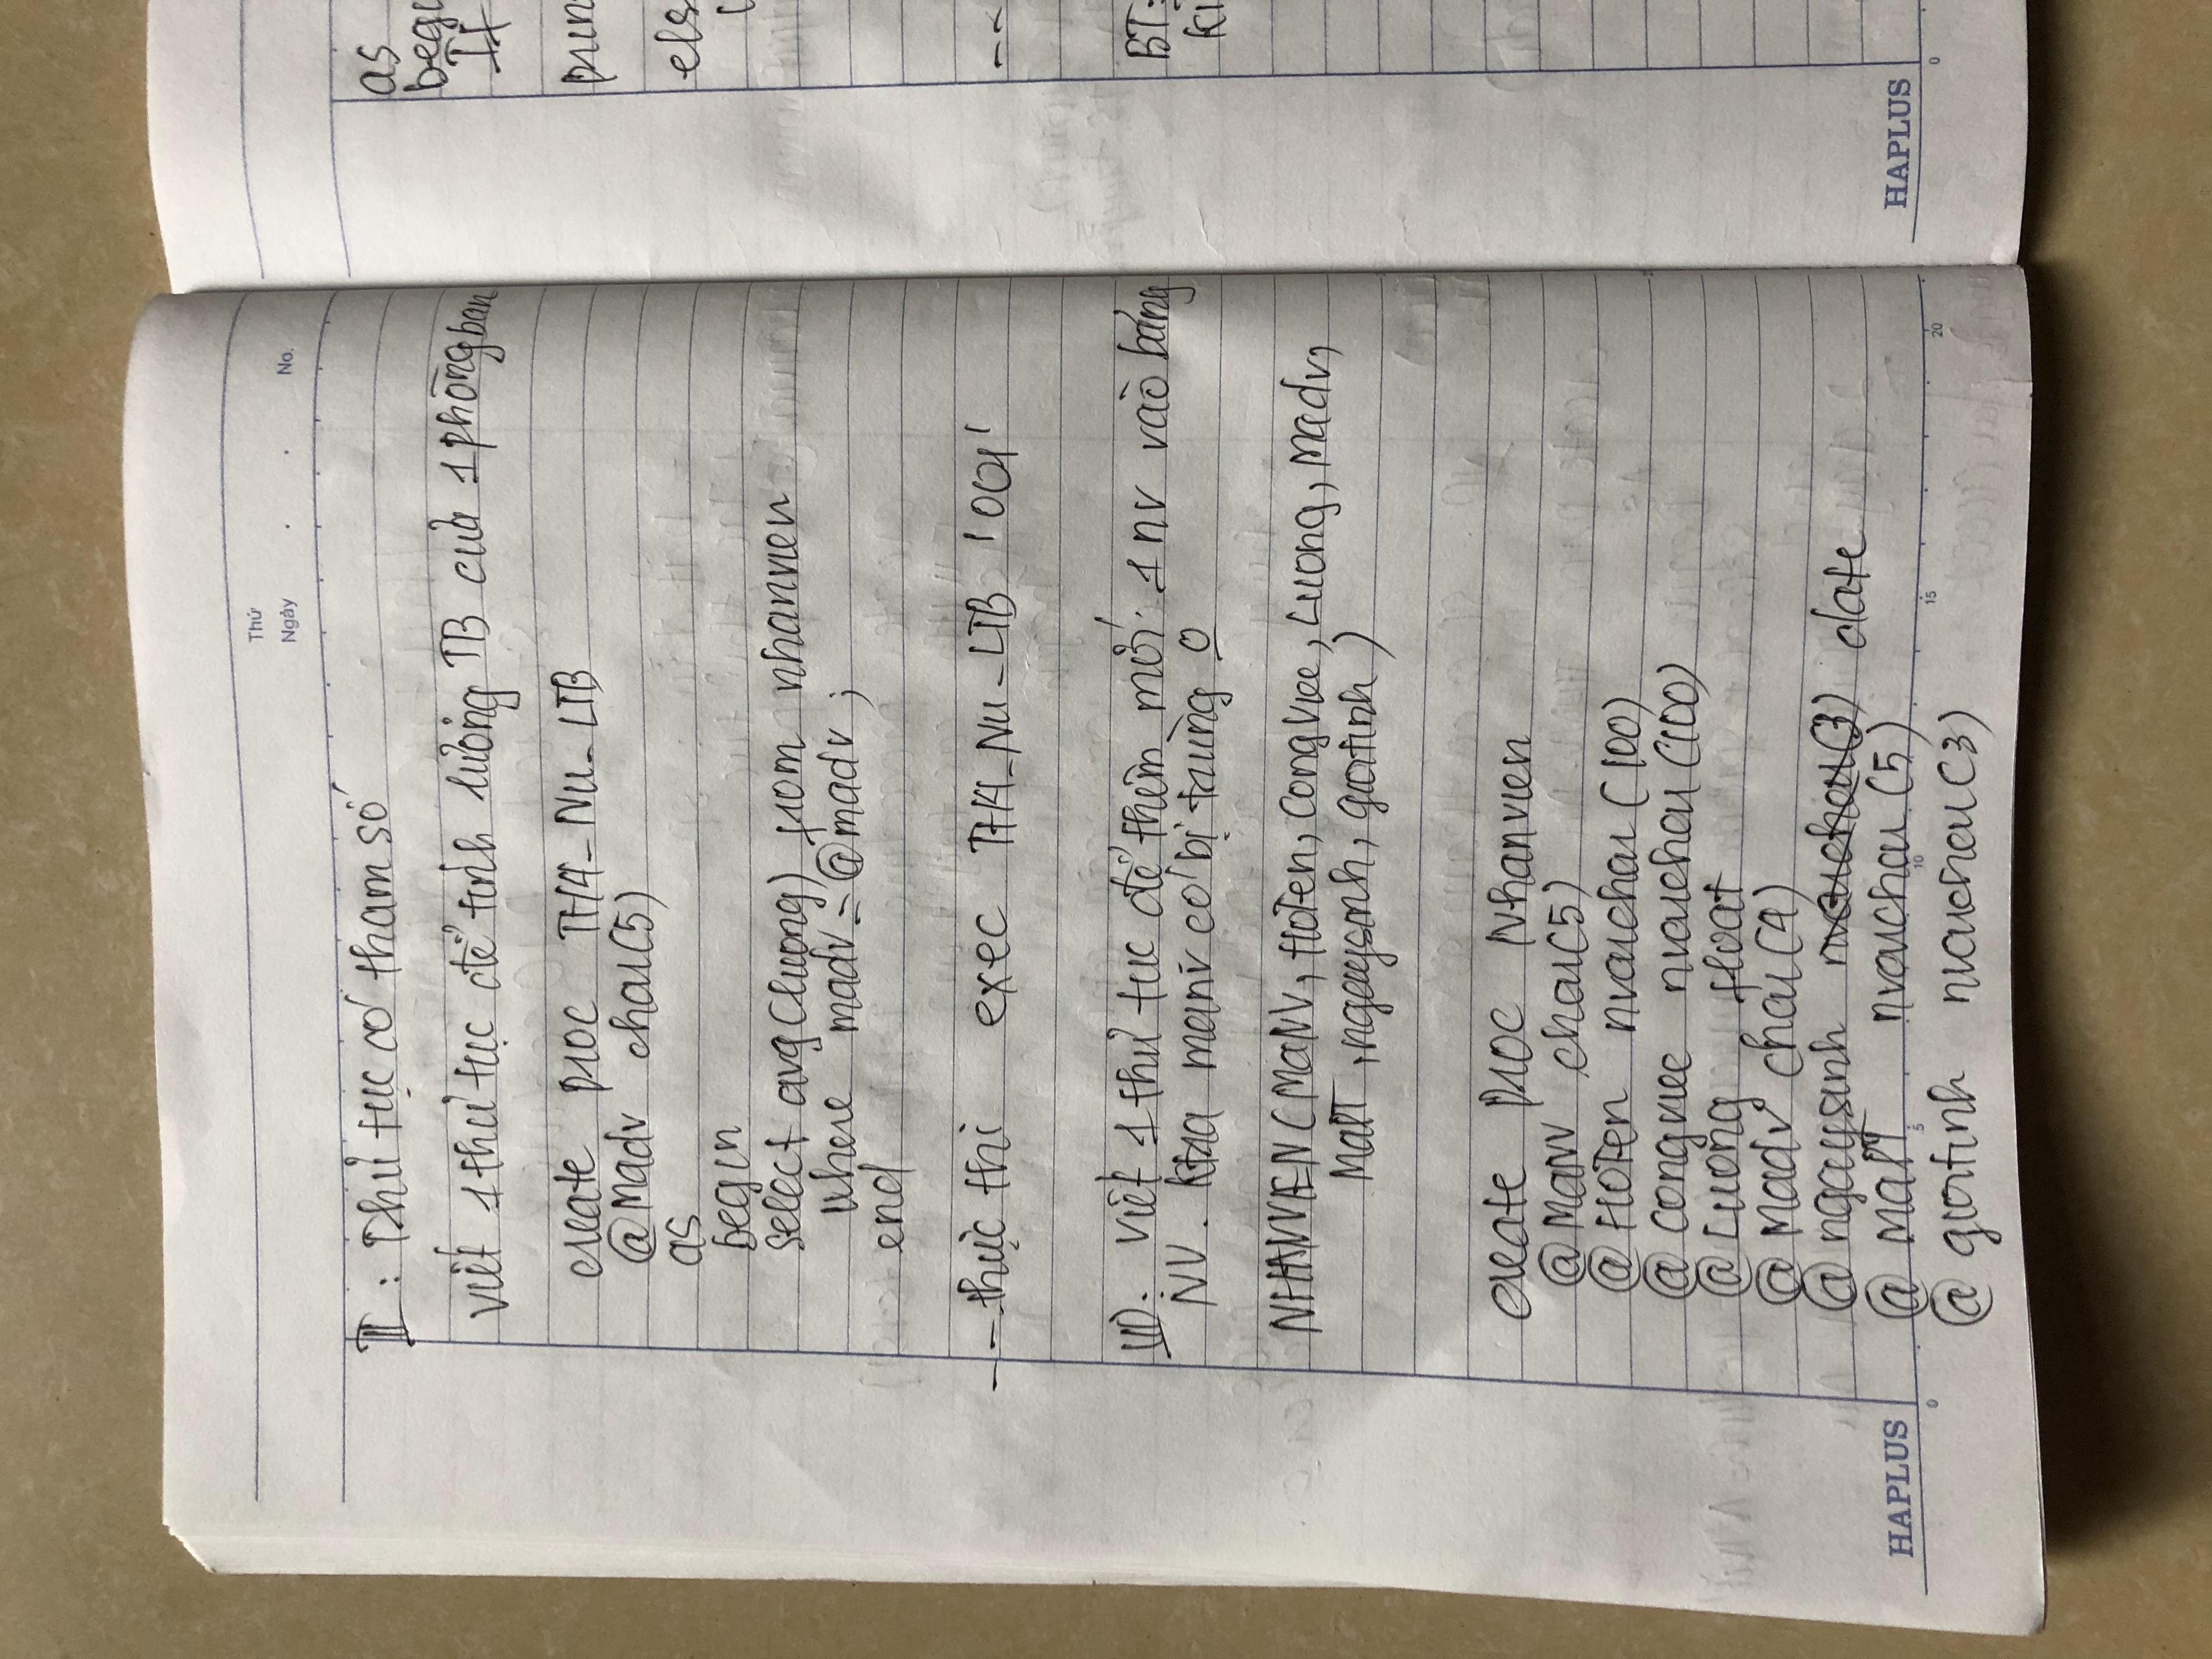 Thứ
Ngày . . No.
II : Thủ tục có tham số
viết 1 thủ tục để tính lương TB của 1 phòng ban
create proc TH4_Nu_LTB
@Madv char(5)
as
begin
select avg(luong) from nhanvien
where madv = @madv ;
end
-- thực thi exec TH4_Nu_LTB '001'
III). Viết 1 thủ tục để thêm mới 1 nv vào bảng
NV. Ktra manv có bị trùng o
NHANVIEN (MaNV, HoTen, CongViec, Luong, Madv,
MaPT, ngaysinh, gioitinh)
create proc Nhanvien
@MaNV char(5)
@HoTen nvarchar (100)
@congviec nvarchar (100)
@Luong float
@Madv char(4)
@ngaysinh nvarchar(3) date
@MaPT nvarchar (5)
@gioitinh nvarchar (3)
HAPLUS
0 5 10 15 20
as
begi
If
prin
els
--
BT:
Ki
HAPLUS
0